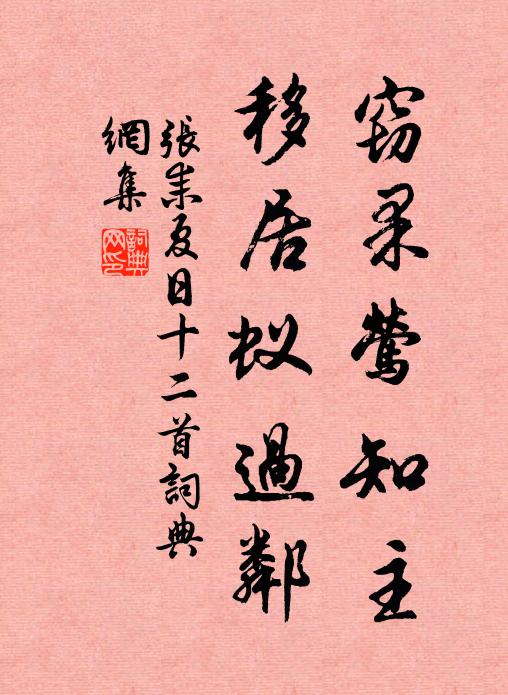 窃果鶯知主
移居蚁過鄰
張耒夏日十二首詞典
網集
詞典
网印